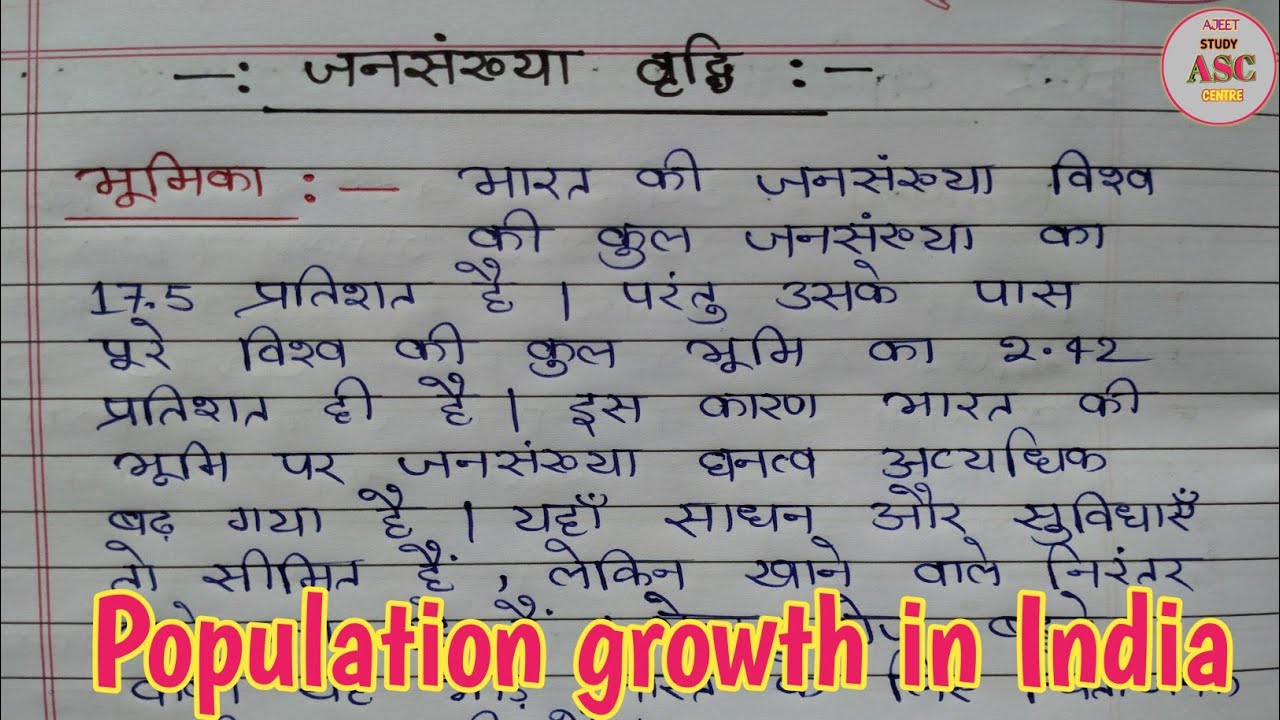 AJEET
STUDY
ASC
CENTRE
—: जनसंख्या वृद्धि :—
भूमिका :— भारत की जनसंख्या विश्व
की कुल जनसंख्या का
17.5 प्रतिशत है । परंतु उसके पास
पूरे विश्व की कुल भूमि का 2.42
प्रतिशत ही है । इस कारण भारत की
भूमि पर जनसंख्या घनत्व अत्यधिक
बढ़ गया है । यहाँ साधन और सुविधाएँ
तो सीमित हैं , लेकिन खाने वाले निरंतर
Population growth in India